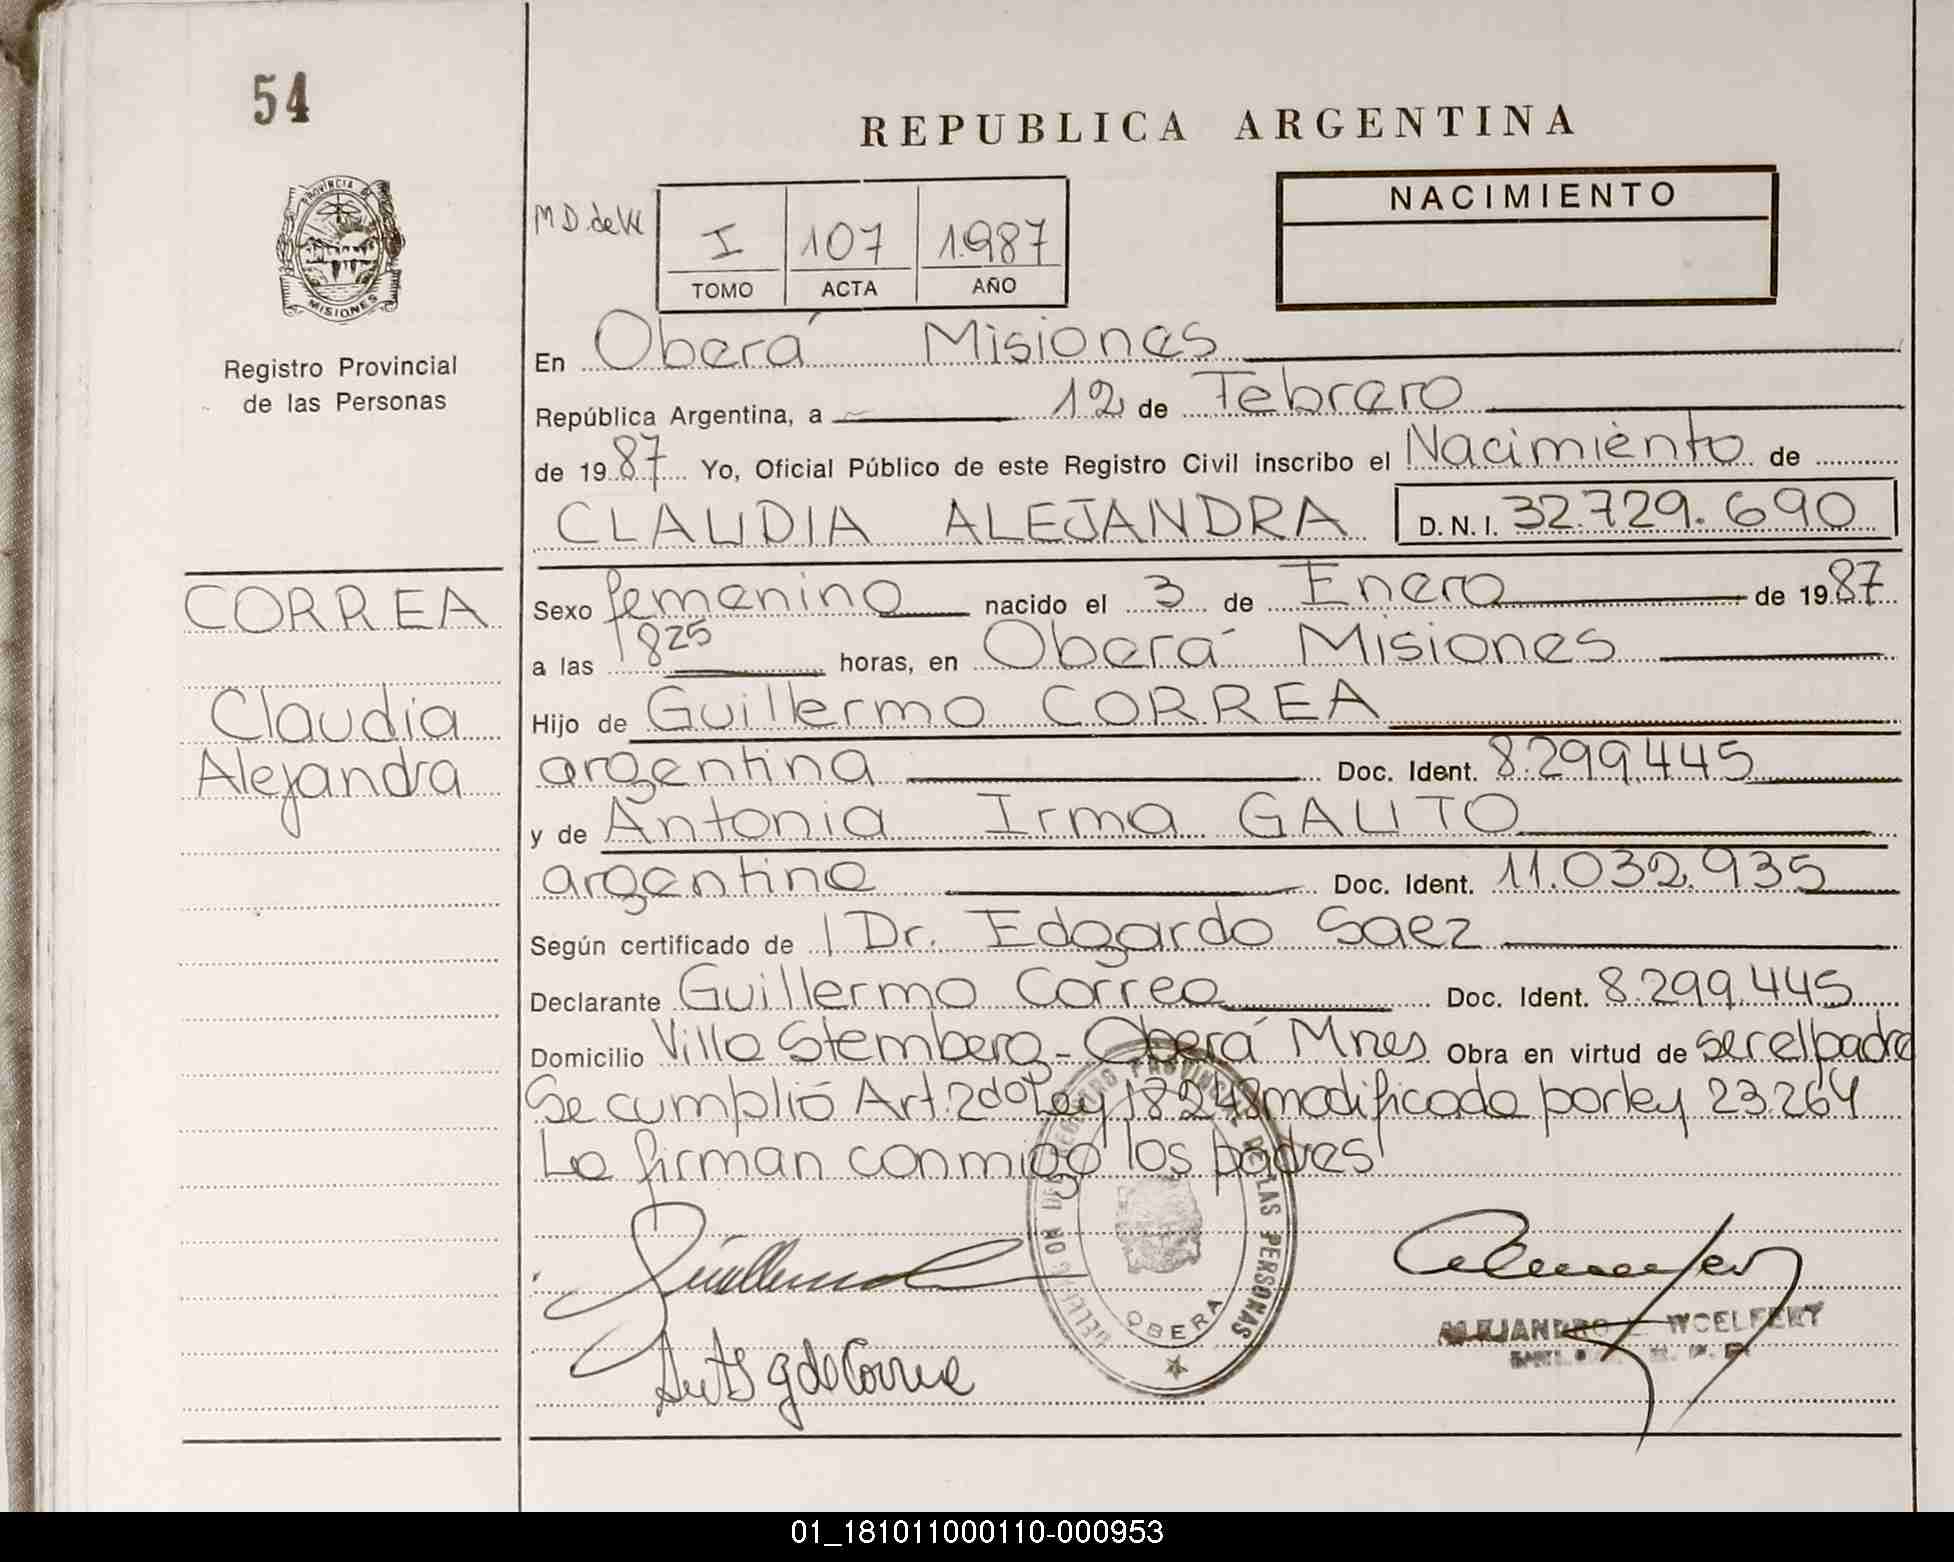 54
REPUBLICA ARGENTINA
NACIMIENTO
PROVINCIA DE
MISIONES
M D. de
I 107 1.987
TOMO ACTA AÑO
Registro Provincial
de las Personas
En Oberá Misiones
República Argentina, a 12 de Febrero
de 1987 Yo, Oficial Público de este Registro Civil inscribo el Nacimiento de
CLAUDIA ALEJANDRA D. N. I. 32.729.690
CORREA
Claudia
Alejandra
Sexo femenino nacido el 3 de Enero de 1987
a las 825 horas, en Oberá Misiones
Hijo de Guillermo CORREA
argentina Doc. Ident. 8.299.445
y de Antonia Irma GAUTO
argentina Doc. Ident. 11.032.935
Según certificado de Dr. Edgardo Saez
Declarante Guillermo Correa Doc. Ident. 8.299.445
Domicilio Villa Stemberg - Oberá Mnes Obra en virtud de ser el padre
Se cumplió Art. 2do Ley 18248 modificada por ley 23.264
La firman conmigo los padres
REGISTRO PROVINCIAL DE LAS PERSONAS
OBERA
de Correa
ALEJANDRO WOELFERT
01_181011000110-000953